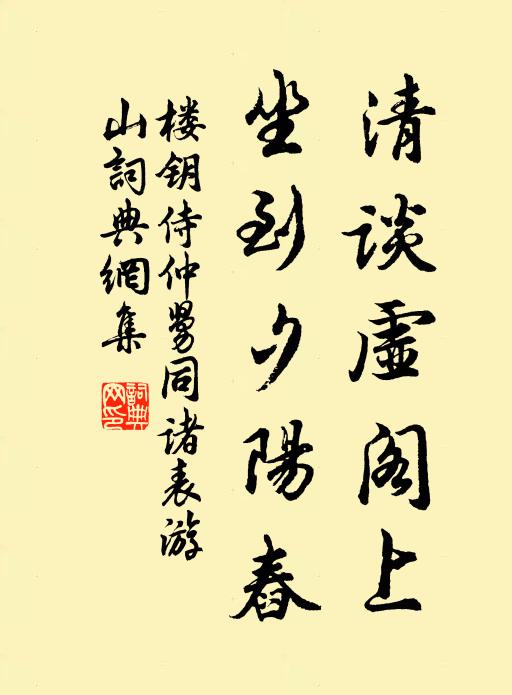 清谈虚阁上
坐到夕陽舂
楼钥侍仲舅同诸表游
山詞典網集
詞典
网印